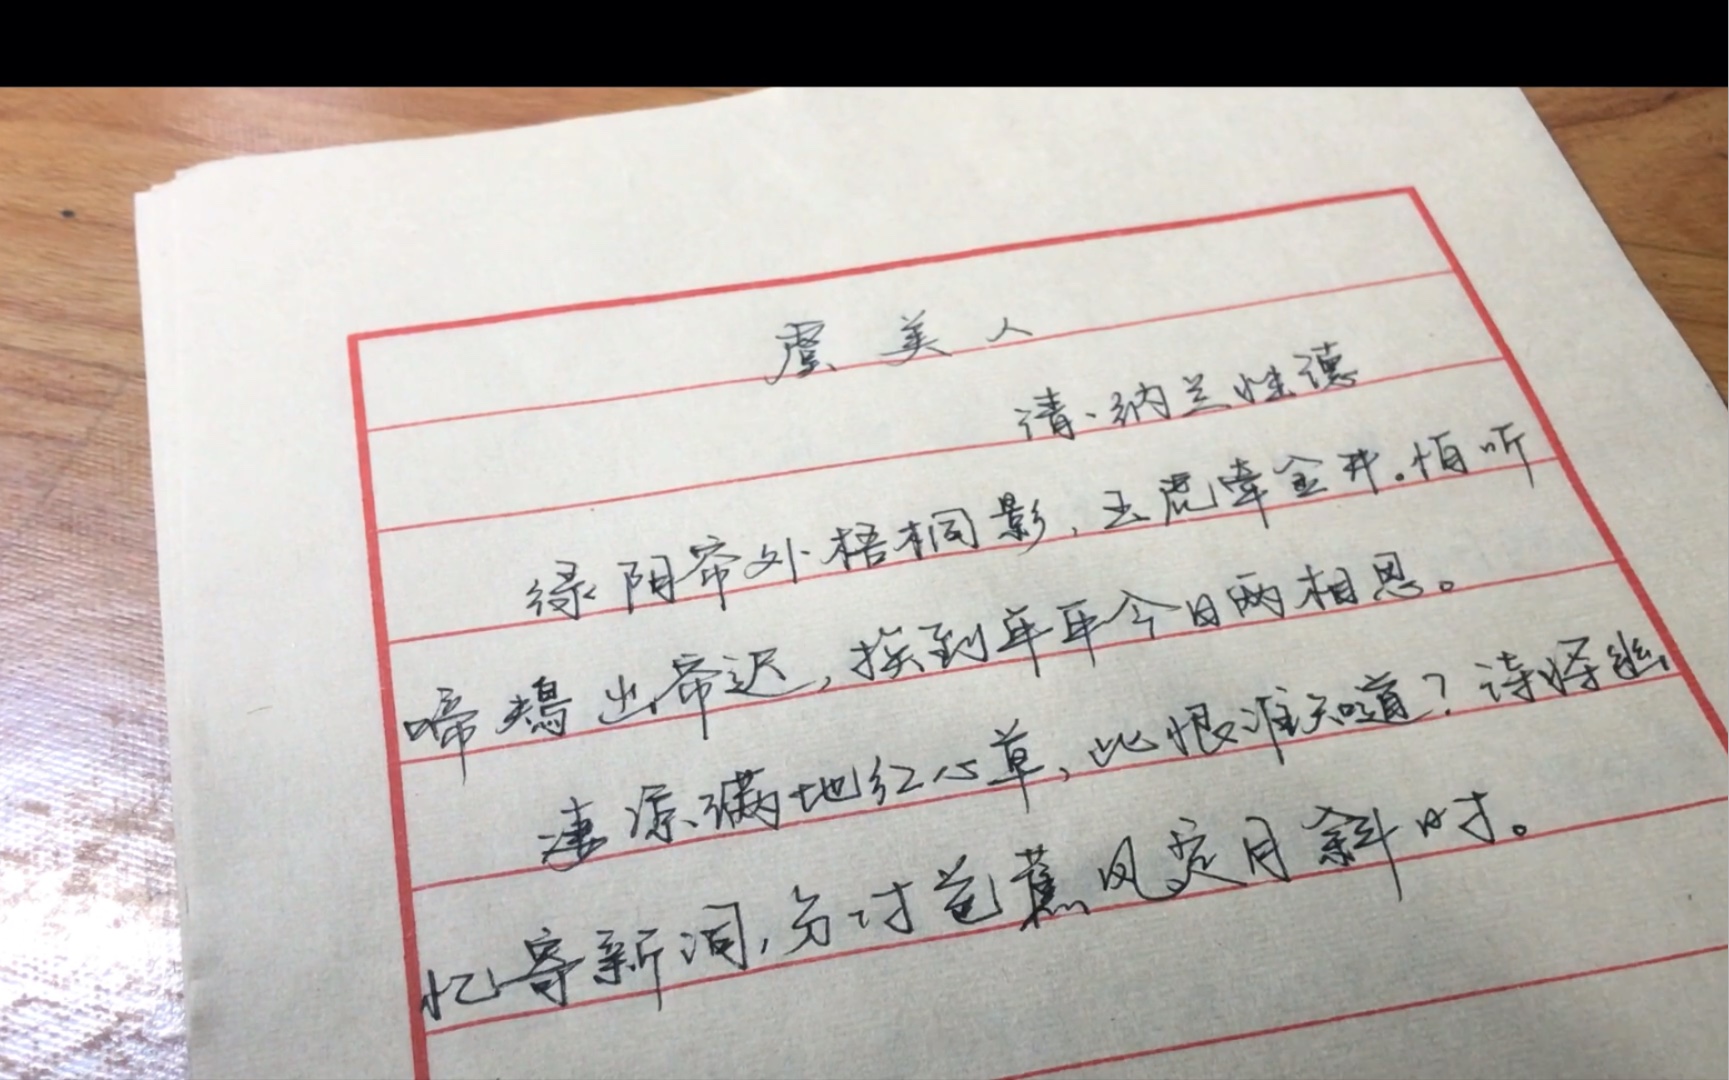 虞美人
清、纳兰性德
绿阴帘外梧桐影，玉虎牵金井。怕听
啼鴂出帘迟，挨到年年今日两相思。
凄凉满地红心草，此恨谁知道？待将幽
忆寄新词，分付芭蕉风定月斜时。